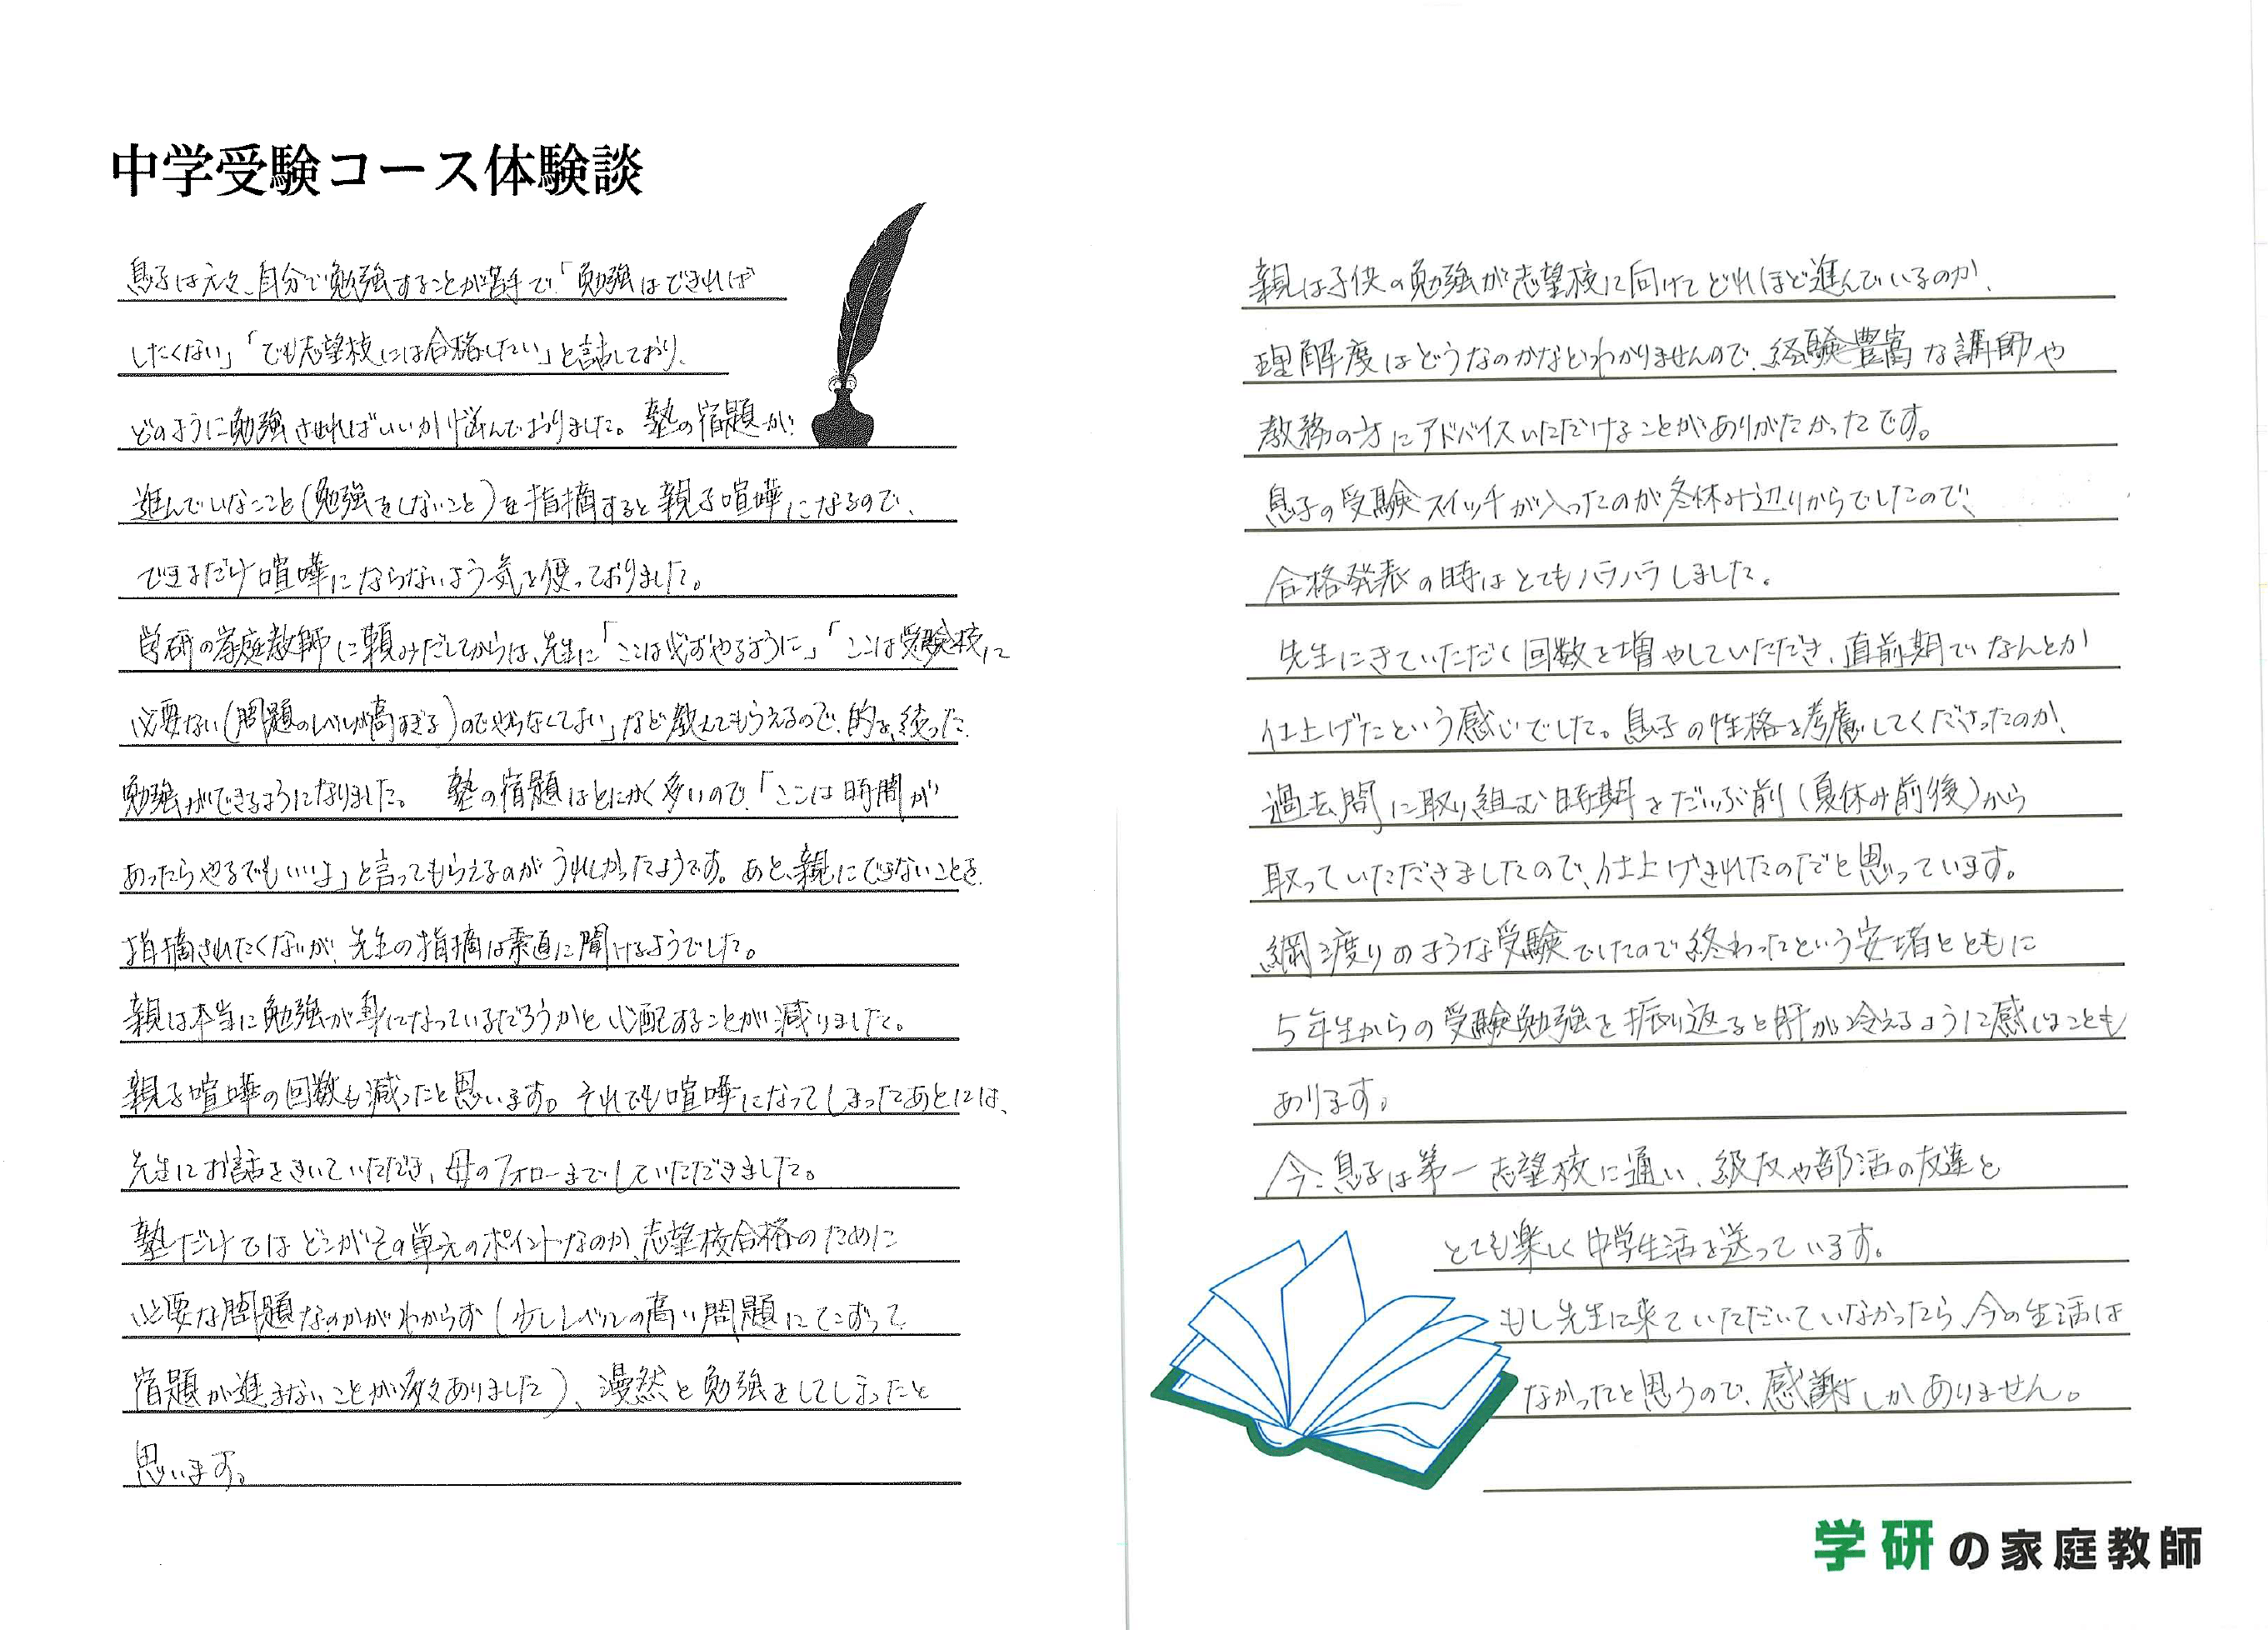 中学受験コース体験談
息子は元々、自分で勉強することが苦手で、「勉強はできれば
したくない」「でも志望校には合格したい」と話しており、
どのように勉強させればいいか悩んでおりました。塾の宿題が
進んでいなこと(勉強をしないこと)を指摘すると親子喧嘩になるので、
できるだけ喧嘩にならないよう気を使っておりました。
学研の家庭教師に頼みだしてからは、先生に「ここは必ずやるように」「ここは受験校に
必要ない(問題のレベルが高すぎる)のでやらなくてよい」など教えてもらえるので、的を絞った
勉強ができるようになりました。 塾の宿題はとにかく多いので、「ここは時間が
あったらやるでもいいよ」と言ってもらえるのがうれしかったようです。あと、親にできないことを
指摘されたくないが、先生の指摘は素直に聞けるようでした。
親は本当に勉強が身になっているだろうかと心配することが減りました。
親子喧嘩の回数も減ったと思います。それでも喧嘩になってしまったあとには、
先生にお話をきいていただき、母のフォローまでしていただきました。
塾だけではどこがその単元のポイントなのか、志望校合格のために
必要な問題なのかがわからず(少しレベルの高い問題にてこずって
宿題が進まないことが多々ありました)、漫然と勉強をしてしまったと
思います。
親は子供の勉強が志望校に向けてどれほど進んでいるのか、
理解度はどうなのかなどわかりませんので、経験豊富な講師や
教務の方にアドバイスいただけることがありがたかったです。
息子の受験スイッチが入ったのが冬休み辺りからでしたので、
合格発表の時はとてもハラハラしました。
先生にきていただく回数を増やしていただき、直前期でなんとか
仕上げたという感じでした。息子の性格を考慮してくださったのか、
過去問に取り組む時期をだいぶ前(夏休み前後)から
取っていただきましたので、仕上げきれたのだと思っています。
綱渡りのような受験でしたので終わったという安堵とともに
5年生からの受験勉強を振り返ると肝が冷えるように感じることも
あります。
今、息子は第一志望校に通い、級友や部活の友達と
とても楽しく中学生活を送っています。
もし先生に来ていただいていなかったら、今の生活は
なかったと思うので、感謝しかありません。
学研の家庭教師